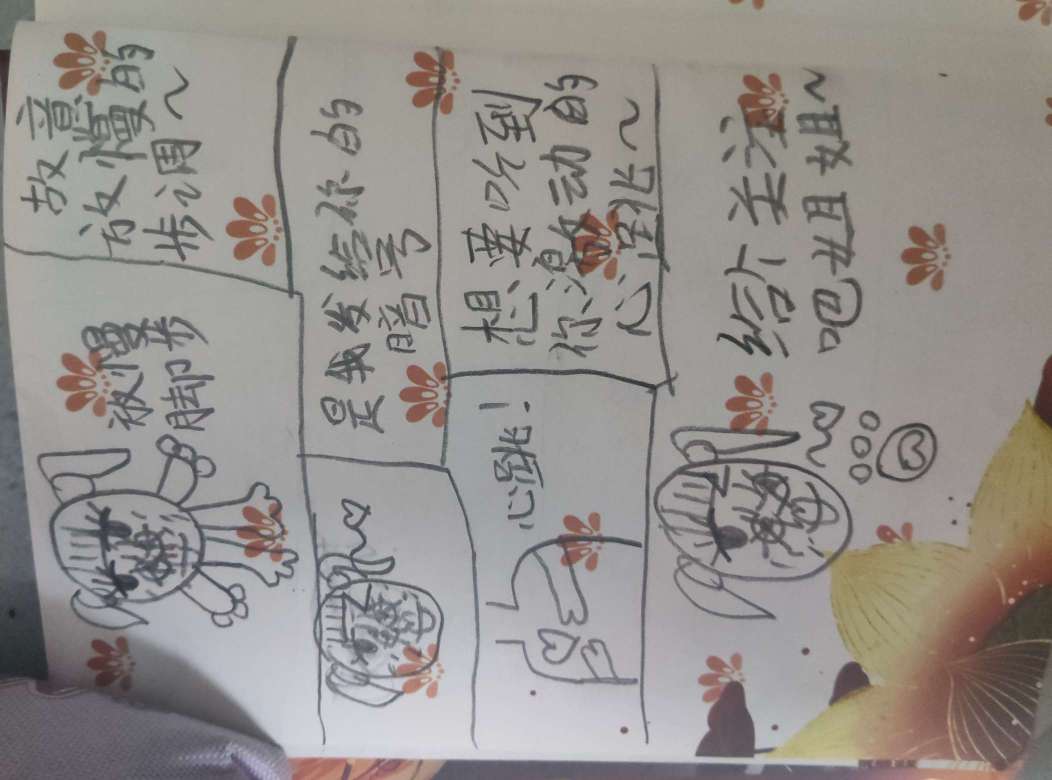 放慢
脚步
故意
放慢的
步调~
是我发给你的
暗号
心跳!
想要听到
你激动的
心跳~
给个关注
吧姐姐~